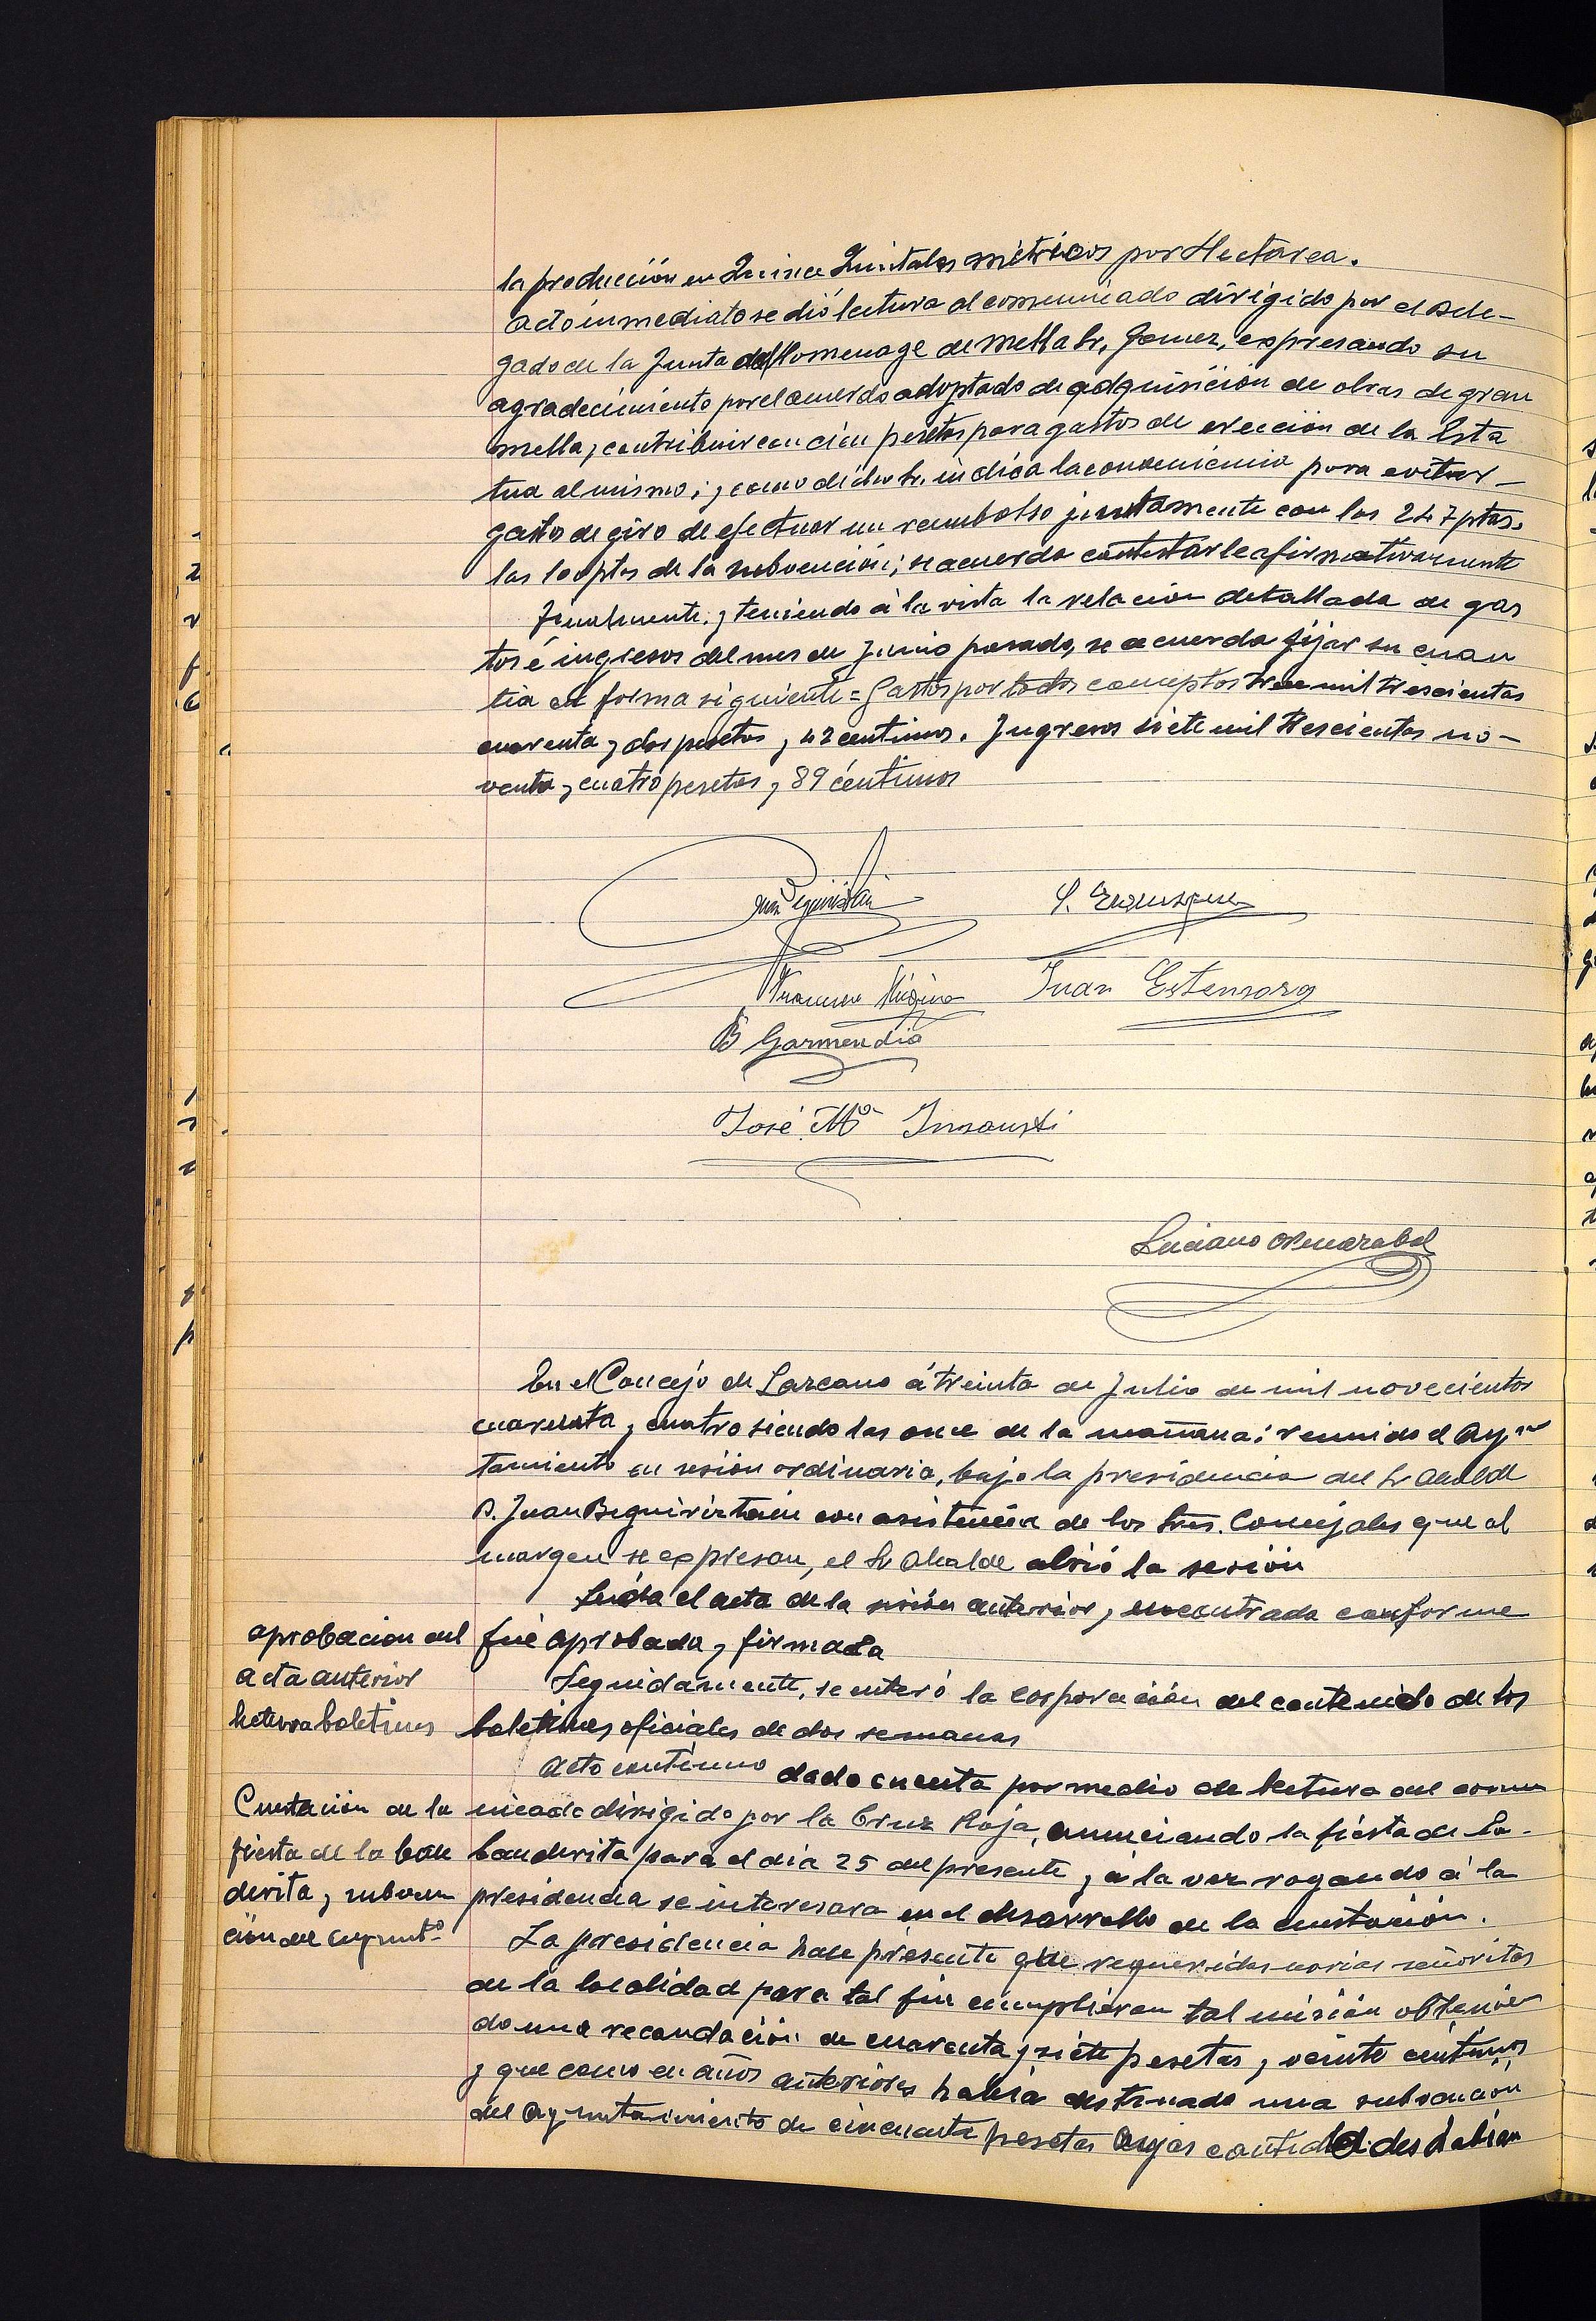 la producción en Quince Quintales métricos por Hectárea.
Acto inmediato se dió lectura al comunicado dirigido por el Dele-
gado de la Junta del Homenage de Mella Sr. Gomez, expresando su
agradecimiento por el acuerdo adoptado de adquisicion de obras de gran
Mella, y contribuir con cien pesetas para gastos de ereccion de la Esta
tua al mismo; y como dicho Sr. indica la conveniencia para evitar
gastos de giro de efectuar un reembolso juntamente con las 247 ptas.
las 100 ptas de la subvención; se acuerda contestarle afirmativamente
Finalmente, y teniendo á la vista la relacion detallada de gas
tos é ingresos del mes de Junio pasado, se acuerda fijar su cuan
tia en forma siguiente = Gastos por todos conceptos trece mil trescientas
cuarenta y dos pesetas y 42 centimos. Ingresos siete mil trescientas no-
venta y cuatro pesetas y 89 céntimos
Francisco
Juan Estensoro
B Garmendia
José Mª Insausti
Luciano
En el Concejo de Lazcano á treinta de Julio de mil novecientos
cuarenta y cuatro siendo las once de la mañana; reunido el Ayun
tamiento en sesión ordinaria, bajo la presidencia del Sr Alcalde
D. Juan Beguiristain con asistencia de los Sres. Concejales que al
margen se expresan, el Sr Alcalde abrió la sesión
Leida el acta de la sesión anterior y encontrada conforme
aprobacion del
acta anterior
fué aprobada y firmada
Seguidamente, se enteró la corporación del contenido de los
lectura boletines
boletines oficiales de dos semanas
Acto contínuo dado cuenta por medio de lectura del comu
Cuestación de la
fiesta de la ban
derita y subven
ción del Ayuntº
nicado dirigido por la Cruz Roja, anunciando la fiesta de la
banderita para el dia 25 del presente y á la vez rogando á la
presidencia se interesara en el desarrollo de la cuestación.
La presidencia hace presente que requeridas varias señoritas
de la localidad para tal fin cumplieran tal misión obtenien
do una recaudación de cuarenta y siete pesetas y veinte centimos
y que como en años anteriores habia destinado una subvención
del Ayuntamiento de cincuenta pesetas cuyas cantidades habian